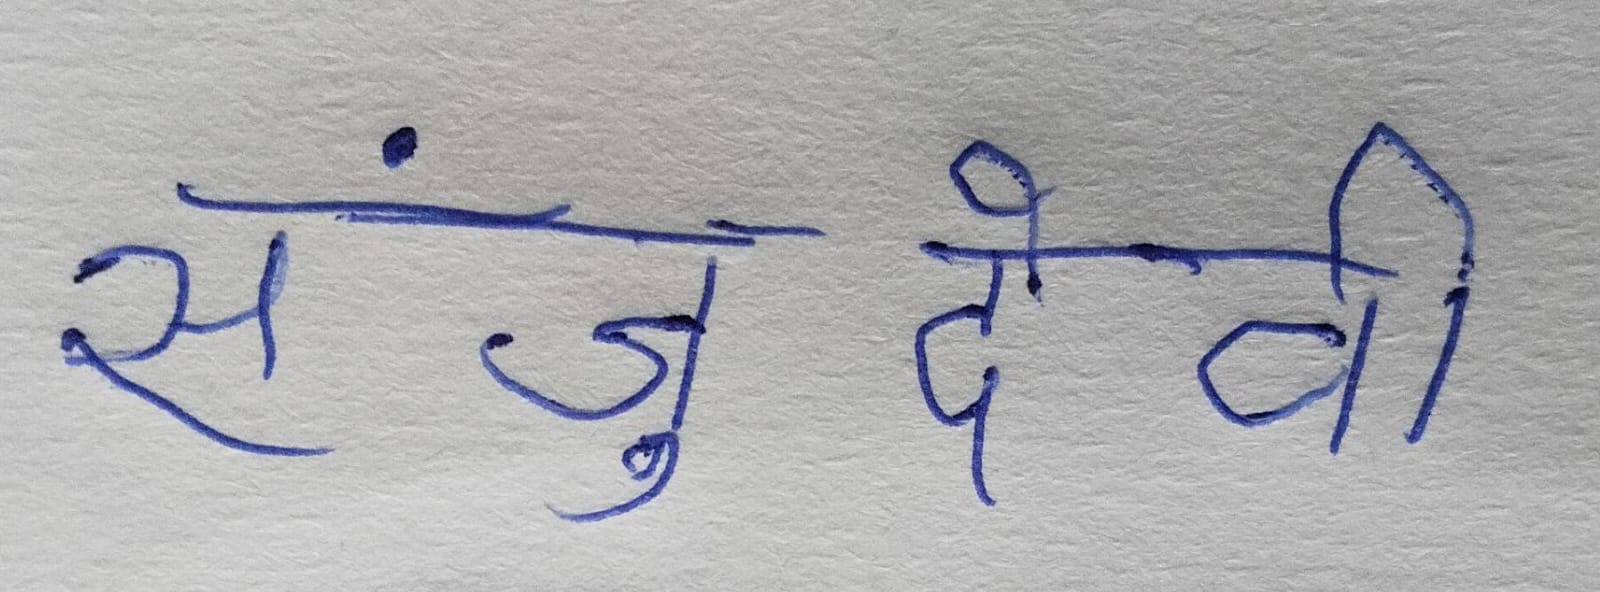 संजु देवी